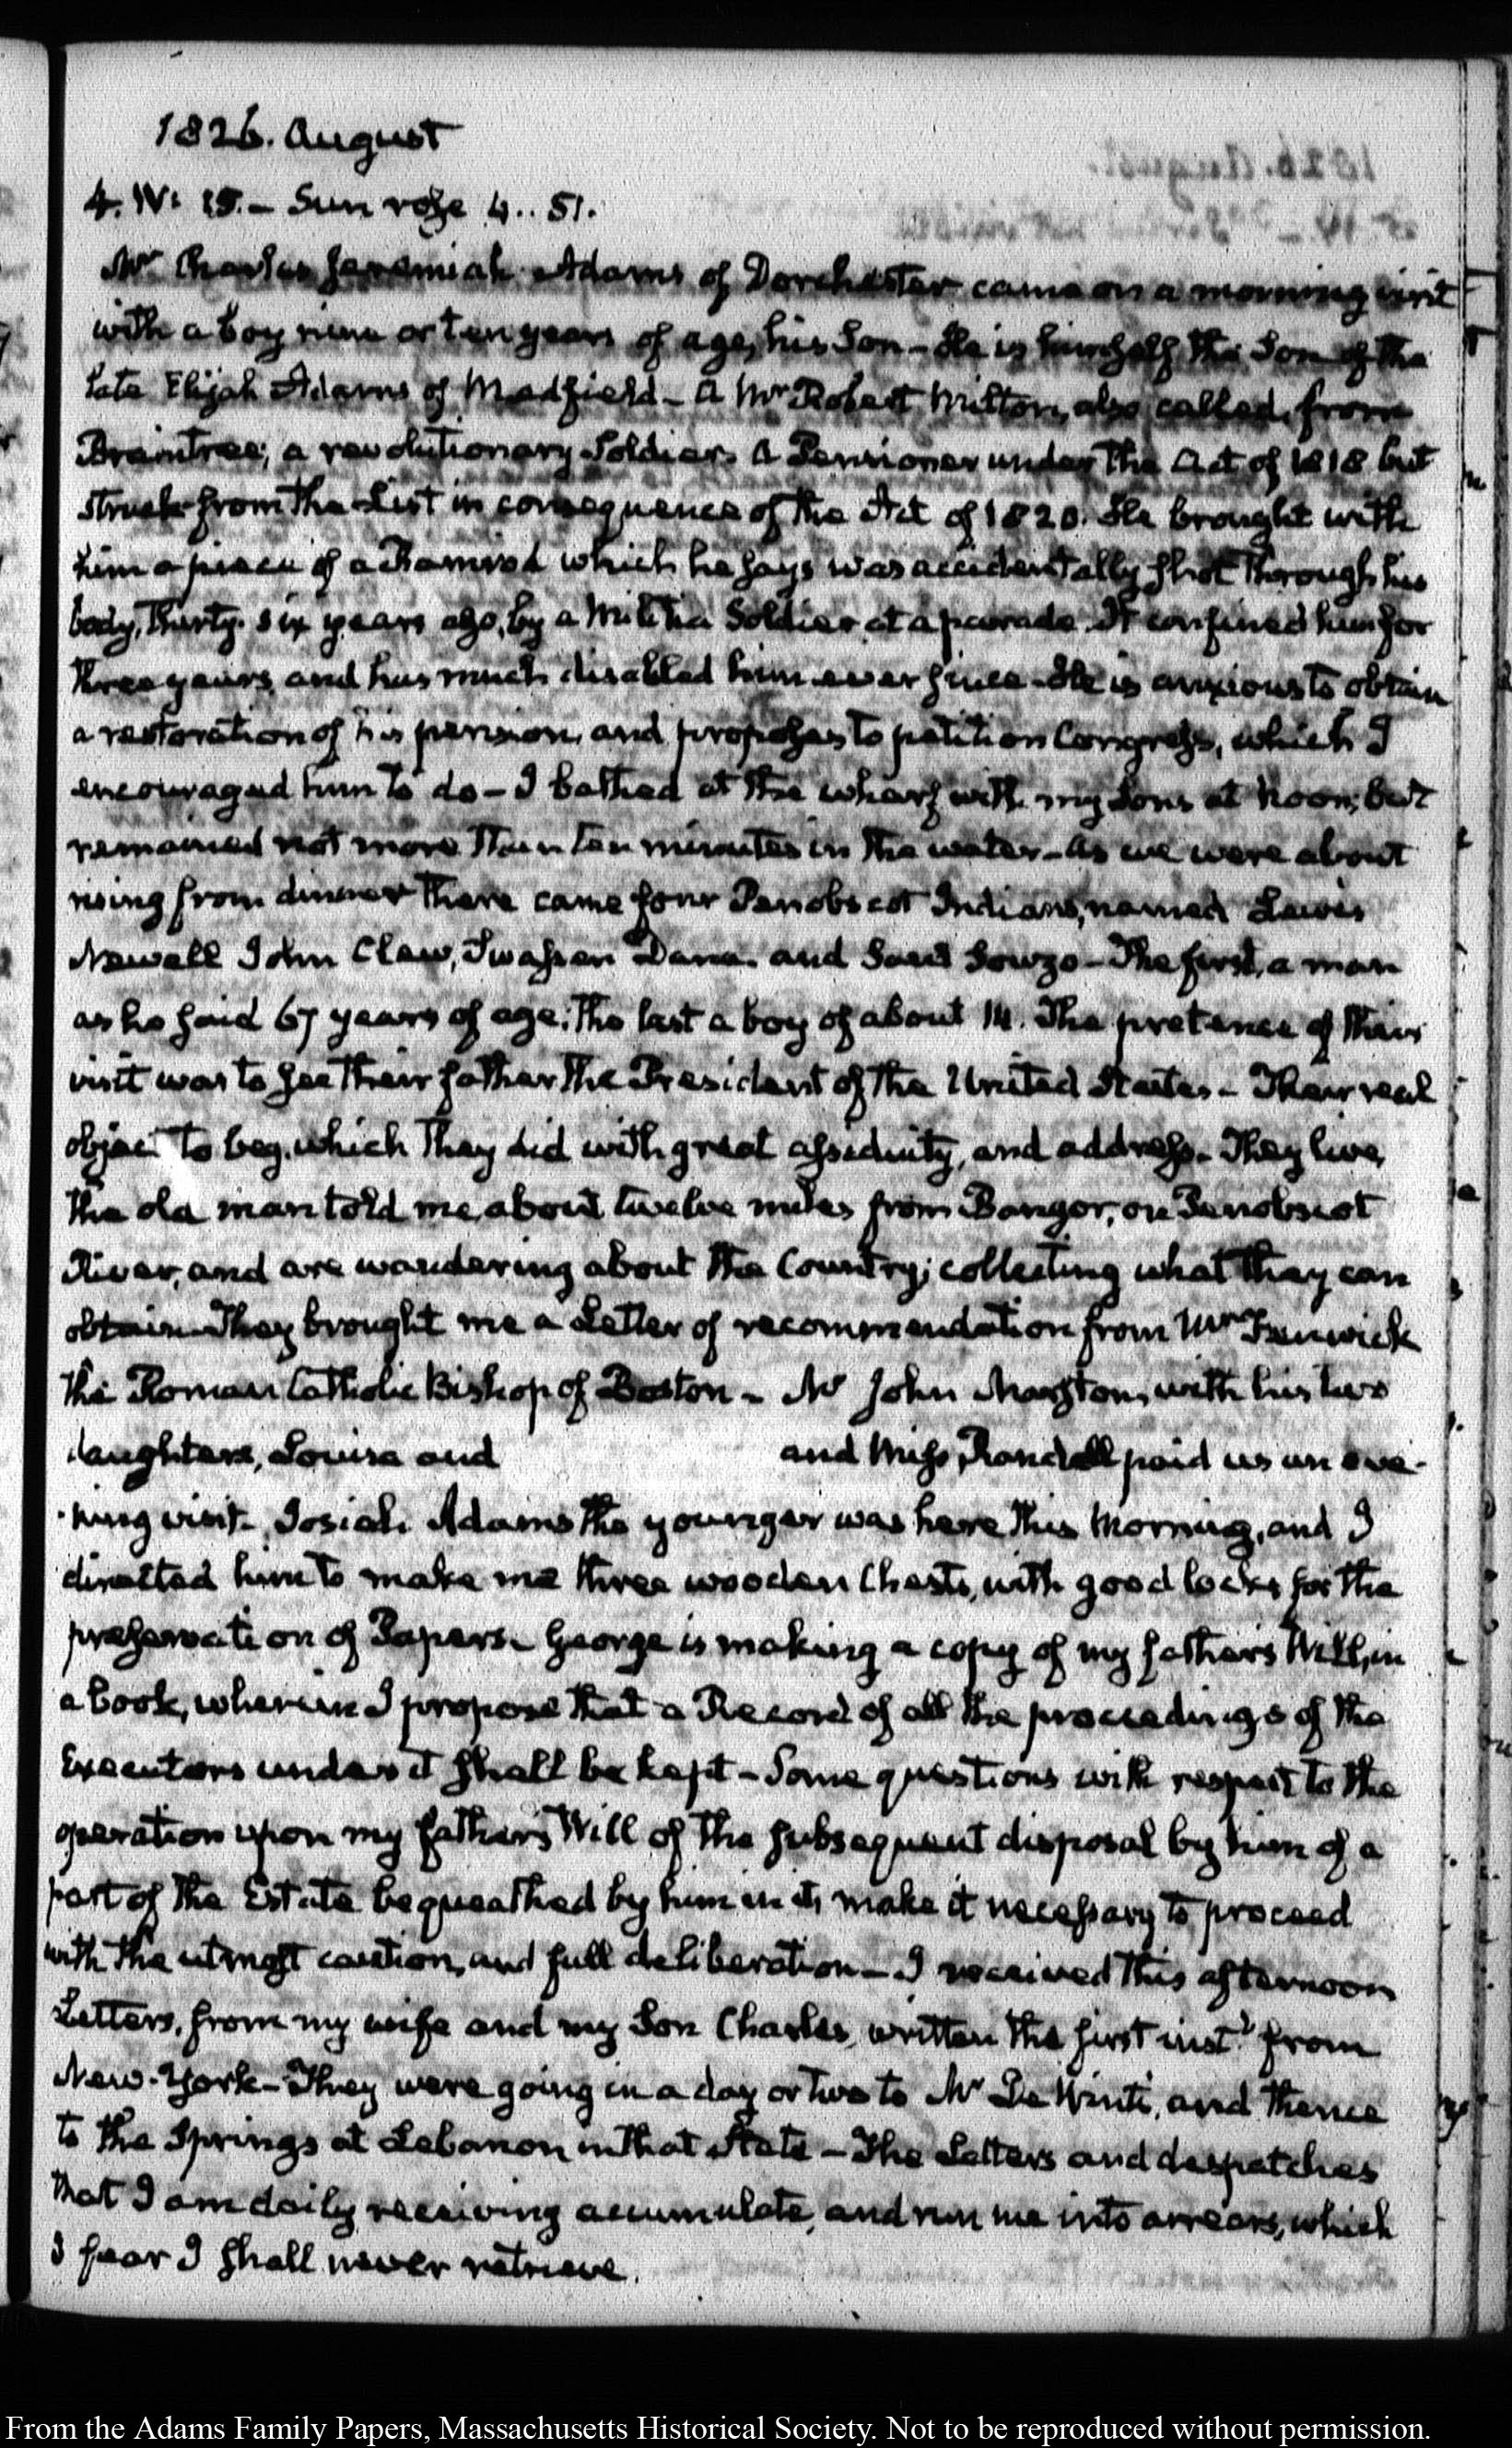 1826. August
4. IV: 15.- Sun rose 4..51.
Mr Charles Jeremiah Adams of Dorchester came on a morning visit
with a boy nine or ten years of age, his Son- He is himself the Son of the
late Elijah Adams of Medfield- A Mr Robert Milton, also called, from
Braintree; a revolutionary Soldier. A Pensioner under the Act of 1818 but
struck from the List in consequence of the Act of 1820. He brought with
him a piece of a Ramrod which he says was accidentally shot through his
body, thirty-six years ago, by a Militia Soldier at a parade. It confined him for
three years, and has much disabled him ever since- He is anxious to obtain
a restoration of his pension, and proposes to petition Congress, which I
encouraged him to do- I bathed at the wharf with my Sons at Noon; but
remained not more than ten minutes in the water- As we were about
rising from dinner there came four Penobscot Indians, named Lewis
Newell John Claw, Dana. and - The first, a man
as he said 67 years of age: the last a boy of about 14. The pretence of their
visit was to see their father the President of the United States- Their real
object to beg, which they did with great assiduity, and address- They live,
the old man told me, about twelve miles from Bangor, on Penobscot
River, and are wandering about the Country; collecting what they can
obtain- They brought me a Letter of recommendation from Mr Fenwick
the Roman Catholic Bishop of Boston- Mr John Marston, with his two
daughters, Louisa and and Miss Randall paid us an eve-
-ning visit- Josiah Adams the younger was here this Morning, and I
directed him to make me three wooden Chests, with good locks for the
preservation of Papers- George is making a copy of my father's Will, in
a book, wherein I propose that a Record of all the proceedings of the
Executors under it shall be kept- Some questions with respect to the
operation upon my father's Will of the subsequent disposal by him of a
part of the Estate bequeathed by him in it, make it necessary to proceed
with the utmost caution, and full deliberation- I received this afternoon
Letters, from my wife and my Son Charles, written the first inst.t from
New-York- They were going in a day or two to Mr De Wint's, and thence
to the Springs at Lebanon in that State- The Letters and despatches
that I am daily receiving accumulate, and run me into arrears, which
I fear I shall never retrieve.
From the Adams Family Papers, Massachusetts Historical Society. Not to be reproduced without permission.